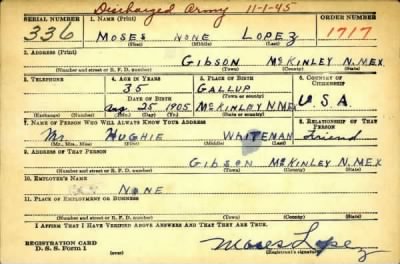 Discharged Army 11-1-45
SERIAL NUMBER 1. NAME (Print) ORDER NUMBER
336 MOSES NONE LOPEZ 1717
(First) (Middle) (Last)
2. ADDRESS (Print)
GIBSON MCKINLEY N.MEX.
(Number and street or R. F. D. number) (Town) (County) (State)
3. TELEPHONE 4. AGE IN YEARS 5. PLACE OF BIRTH 6. COUNTRY OF CITIZENSHIP
35 GALLUP
DATE OF BIRTH (Town or county)
Aug. 25 1905 MCKINLEY N.MEX U.S.A.
(Exchange) (Number) (Mo.) (Day) (Yr.) (State or country)
7. NAME OF PERSON WHO WILL ALWAYS KNOW YOUR ADDRESS 8. RELATIONSHIP OF THAT PERSON
Mr. HUGHIE WHITEMAN Friend
(Mr., Mrs., Miss) (First) (Middle) (Last)
9. ADDRESS OF THAT PERSON
GIBSON MCKINLEY N.MEX
(Number and street or R. F. D. number) (Town) (County) (State)
10. EMPLOYER'S NAME
NONE
11. PLACE OF EMPLOYMENT OR BUSINESS
(Number and street or R. F. D. number) (Town) (County) (State)
I AFFIRM THAT I HAVE VERIFIED ABOVE ANSWERS AND THAT THEY ARE TRUE.
REGISTRATION CARD
D. S. S. Form 1 (over) Moses Lopez
(Registrant's signature)